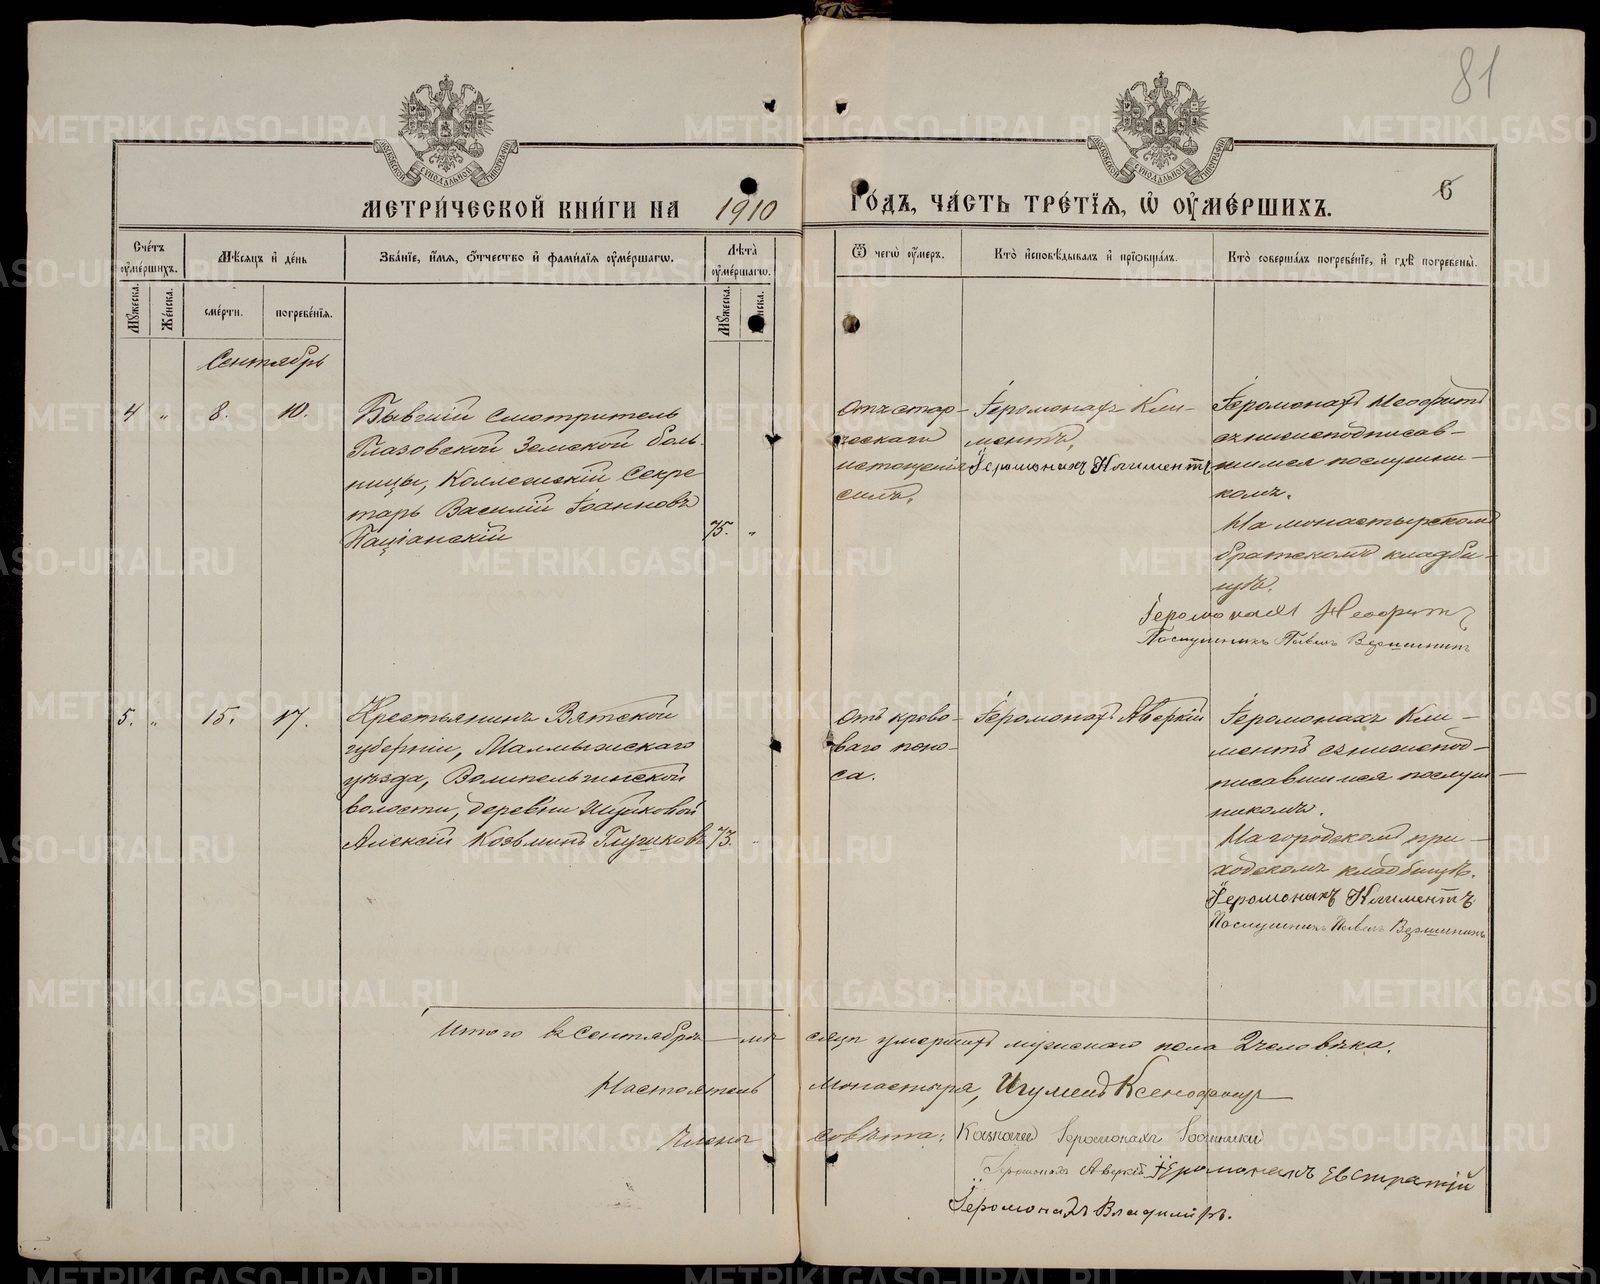 81
МЕТРИ́ЧЕСКОЙ КНИ́ГИ НА 1910 ГО́ДЪ, ЧА́СТЬ ТРЕ́ТІѦ, Ѡ ОУ҆МЕ́РШИХЪ.
6
Сче́тъ оу҆ме́ршихъ.
Мѣсѧцъ и҆ де́нь
Зва́нїе, и҆́мѧ, ѻ҆́тчество и҆ фами́лїѧ оу҆ме́ршагѡ.
Лѣта̀ оу҆ме́ршагѡ.
Ѿ чегѡ̀ оу҆́меръ.
Кто̀ и҆сповѣ́дывалъ и҆ прїѡбща́лъ.
Кто̀ соверша́лъ погребе́нїе, и҆ гдѣ̀ погребены̀.
Мꙋ́жеска.
Же́нска.
сме́рти.
погребе́нїѧ.
Мꙋ́жеска.
Сентябрь
4 „ 8. 10.
Бывшій Смотритель
Глазовской Земской боль-
ницы, Коллежскій Секре
тарь Василій Іоанновъ
Паціанскій
75. „
Отъ стар-
ческаго
истощенія
силъ.
Іеромонахъ Кли-
ментъ.
Іеромонахъ Климентъ
Іеромонахъ Неофитъ
съ нижеподписав-
шимся послушни-
комъ.
На монастырскомъ
братскомъ кладби-
щѣ.
Іеромонахъ Неофитъ
Послушникъ Павелъ Вершининъ
5. „ 15. 17.
Крестьянинъ Вятской
губерніи, Малмыжскаго
уѣзда, Волипельгинской
волости, деревни
Алексѣй Козьминъ Глушковъ
73. „
Отъ крова-
ваго поно-
са.
Іеромонахъ Аверкій
Іеромонахъ Кли-
ментъ съ нижепод-
писавшимся послуш-
никомъ.
На городскомъ при-
ходскомъ кладбищѣ.
Іеромонахъ Климентъ
Послушникъ Павелъ Вершининъ
Итого въ Сентябрѣ мѣсяцѣ умершихъ мужскаго пола 2 человѣка.
Настоятель монастыря, Игуменъ Ксенофонтъ
Члены совѣта: Казначей Іеромонахъ Іоанникій
Іеромонахъ Аверкій Іеромонахъ Евстратій
Іеромонахъ Владиміръ.
METRIKI.GASO-URAL.RU